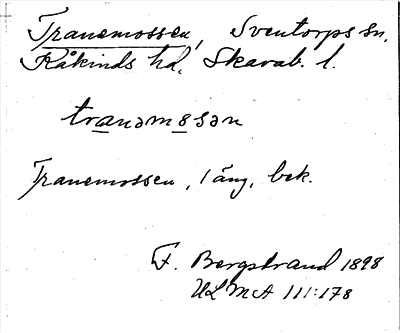 Tranemossen, Sventorps sn.
Kåkinds hd. Skarab. l.
tranəmosən
Tranemossen, 1 äng, bek.
F. Bergstrand 1898
ULMA 111:178